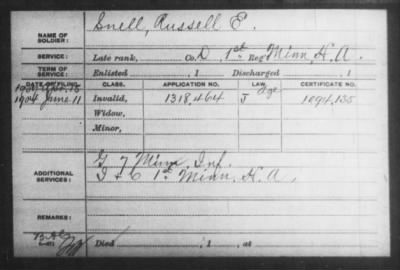 NAME OF SOLDIER: Snell, Russell E.
SERVICE: Late rank, Co. D, 1st Reg't Minn H.A.
TERM OF SERVICE: Enlisted , 1 Discharged , 1
DATE OF FILING. CLASS. APPLICATION NO. LAW. CERTIFICATE NO.
1904 June 11 Invalid, 1318,464 J Age 1094,135
Widow,
Minor,
ADDITIONAL SERVICES: G 7 Minn. Inf.
D & C 1st Minn. H.A.
REMARKS:
Died , 1 , at